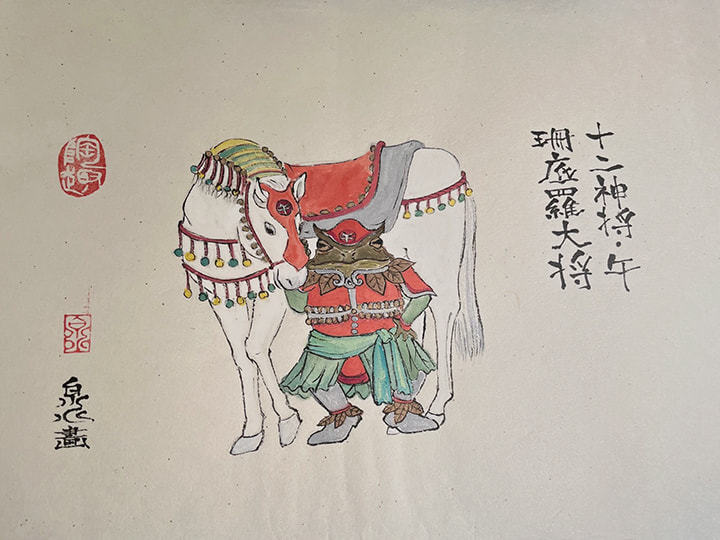 十二神将・午
珊底羅大将
泉畫